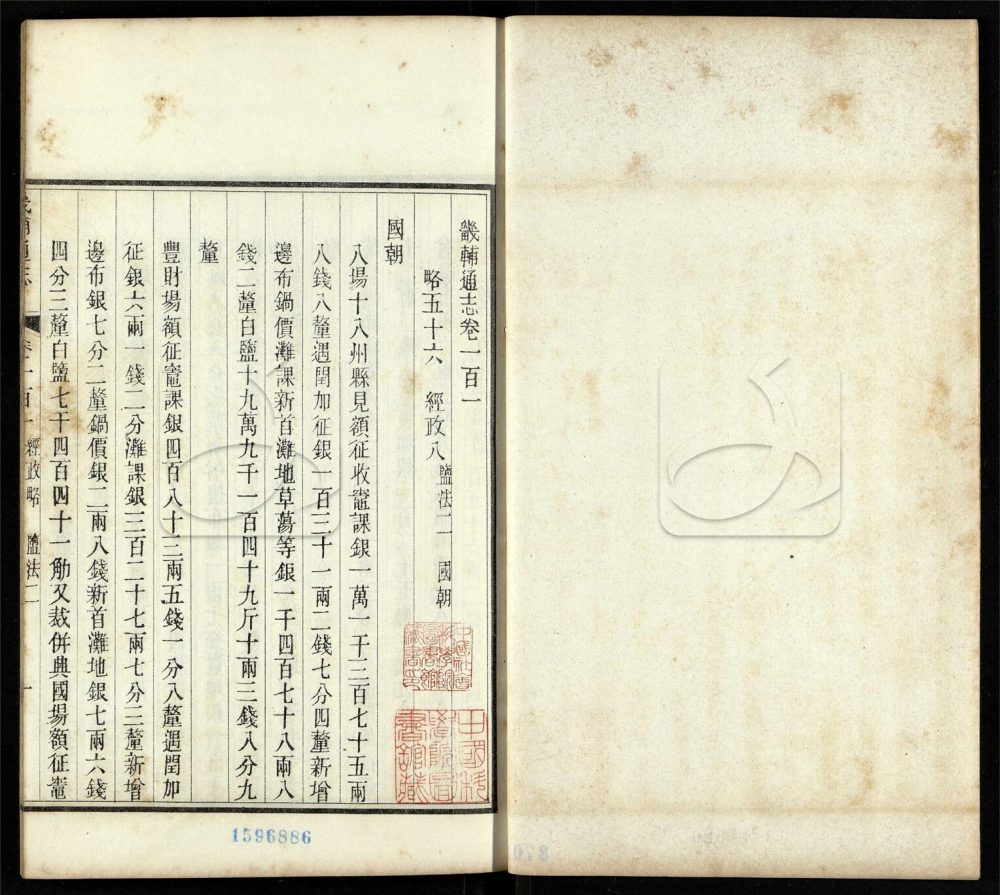 畿輔通志卷一百一
略五十六　經政八　鹽法二　國朝
國朝
八場十八州縣見額征收竈課銀一萬一千三百七十五兩
八錢八釐遇閏加征銀一百三十一兩二錢七分四釐新增
邊布鍋價灘課新首灘地草蕩等銀一千四百七十八兩八
錢二釐白鹽十九萬九千一百四十九斤十兩三錢八分九
釐
豐財場額征竈課銀四百八十三兩五錢一分八釐遇閏加
征銀六兩一錢二分灘課銀三百二十七兩七分三釐新增
邊布銀七分二釐鍋價銀二兩八錢新首灘地銀七兩六錢
四分三釐白鹽七千四百四十一觔又裁併興國場額征竈
經政略　鹽法二　一
中國科
學院圖
書館藏
1596886